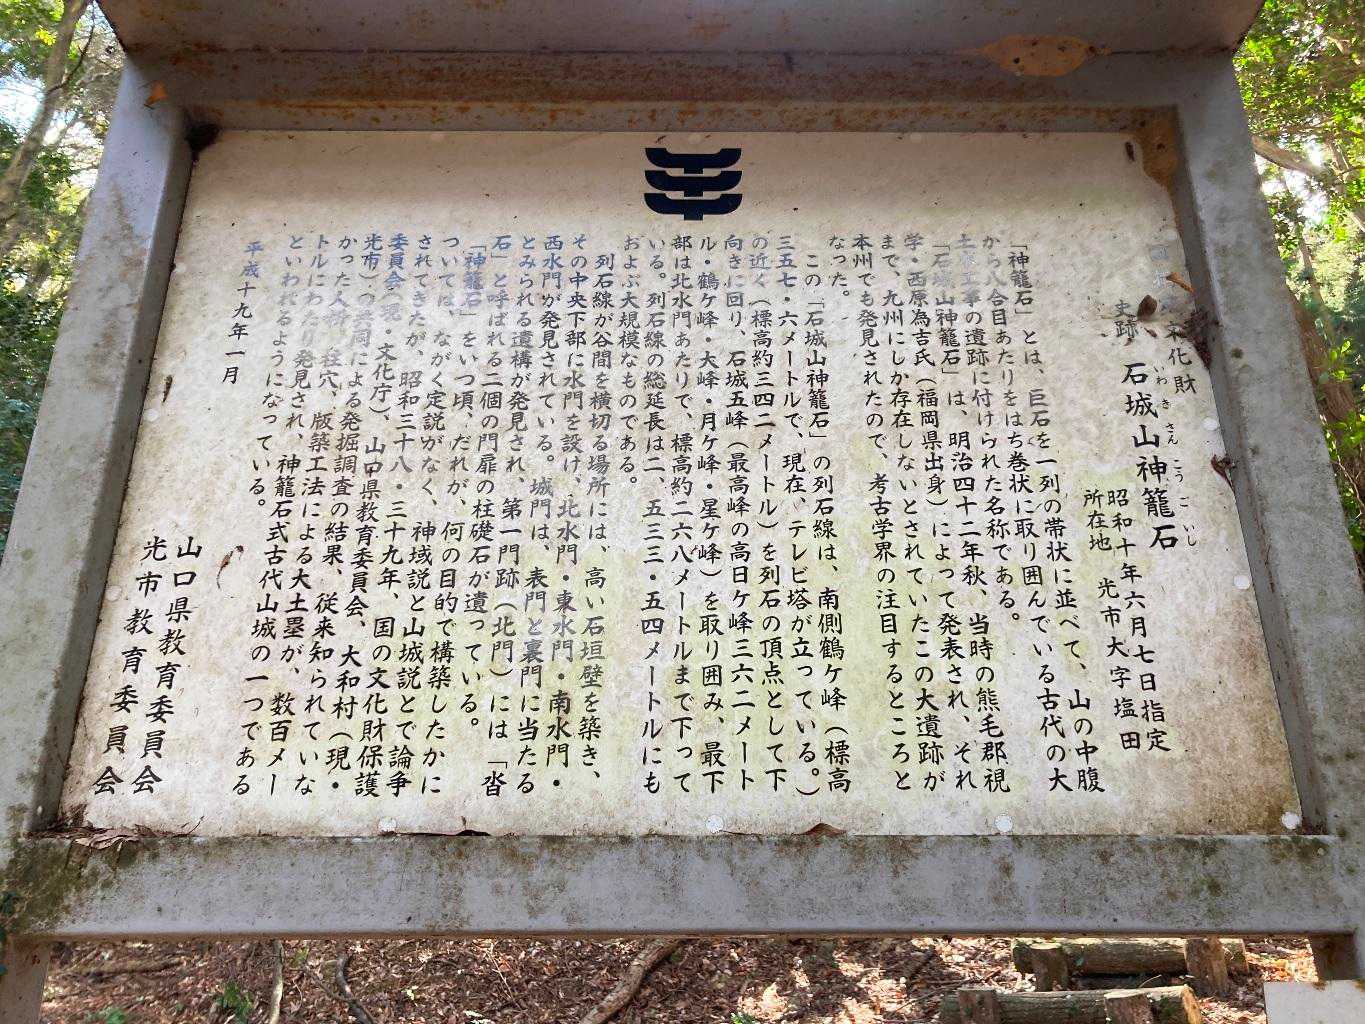 国指定文化財
史跡 石城山神籠石
いわ き さん こう ご いし
昭和十年六月七日指定
所在地 光市大字塩田
「神籠石」とは、巨石を一列の帯状に並べて、山の中腹
から八合目あたりをはち巻状に取り囲んでいる古代の大
土木工事の遺跡に付けられた名称である。
「石城山神籠石」は、明治四十二年秋、当時の熊毛郡視
学・西原為吉氏（福岡県出身）によって発表され、それ
まで、九州にしか存在しないとされていたこの大遺跡が
本州でも発見されたので、考古学界の注目するところと
なった。
この「石城山神籠石」の列石線は、南側鶴ケ峰（標高
三五七・六メートルで、現在、テレビ塔が立っている。）
の近く（標高約三四二メートル）を列石の頂点として下
向きに回り、石城五峰（最高峰の高日ケ峰三六二メート
ル・鶴ケ峰・大峰・月ケ峰・星ケ峰）を取り囲み、最下
部は北水門あたりで、標高約二六八メートルまで下って
いる。列石線の総延長は二、五三三・五四メートルにも
およぶ大規模なものである。
列石線が谷間を横切る場所には、高い石垣壁を築き、
その中央下部に水門を設け、北水門・東水門・南水門・
西水門が発見されている。城門は、表門と裏門に当たる
とみられる遺構が発見され、第一門跡（北門）には「沓
石」と呼ばれる二個の門扉の柱礎石が遺っている。
「神籠石」をいつ頃、だれが、何の目的で構築したかに
ついては、ながく定説がなく、神域説と山城説とで論争
されてきたが、昭和三十八・三十九年、国の文化財保護
委員会（現・文化庁）、山口県教育委員会、大和村（現・
光市）の共同による発掘調査の結果、従来知られていな
かった人柱、柱穴、版築工法による大土塁が、数百メー
トルにわたり発見され、神籠石式古代山城の一つである
といわれるようになっている。
平成十九年一月
山口県教育委員会
光市教育委員会